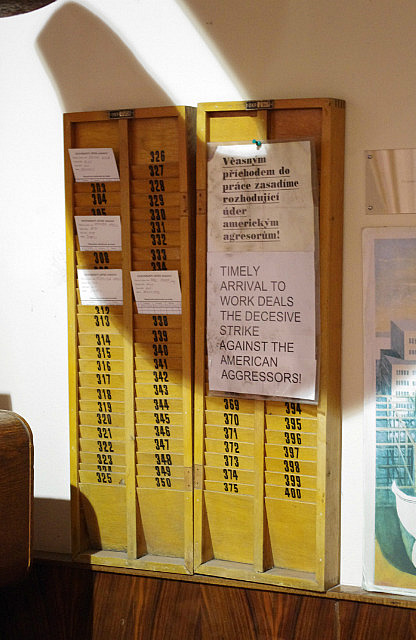 Včasným
příchodem do
práce zasadíme
rozhodující
úder
americkým
agresorům!
TIMELY
ARRIVAL TO
WORK DEALS
THE DECESIVE
STRIKE
AGAINST THE
AMERICAN
AGGRESSORS!
303
304
305
308
312
313
314
315
316
317
318
319
320
321
322
323
324
325
326
327
328
329
330
331
332
333
338
339
340
341
342
343
344
345
346
347
348
349
350
369
370
371
372
373
374
375
394
395
396
397
398
399
400